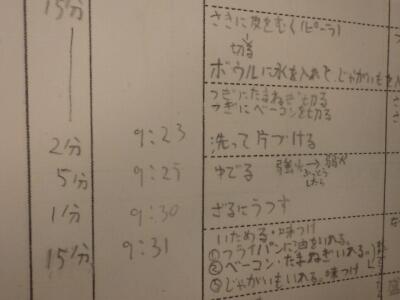 15分
さきに皮をむく(ピーラ)
切る
ボウルに水を入れて、じゃがいもを入
つぎにたまねぎ切る
つぎにベーコンを切る
2分 9:23 洗って片づける
5分 9:25 ゆでる 強火→弱火
ふっとう
したら
1分 9:30 ざるにうつす
15分 9:31 いためる・味つけ
①フライパンに油をいれる。
②ベーコン・たまねぎいれる。
③じゃがいもいれる。味つけ